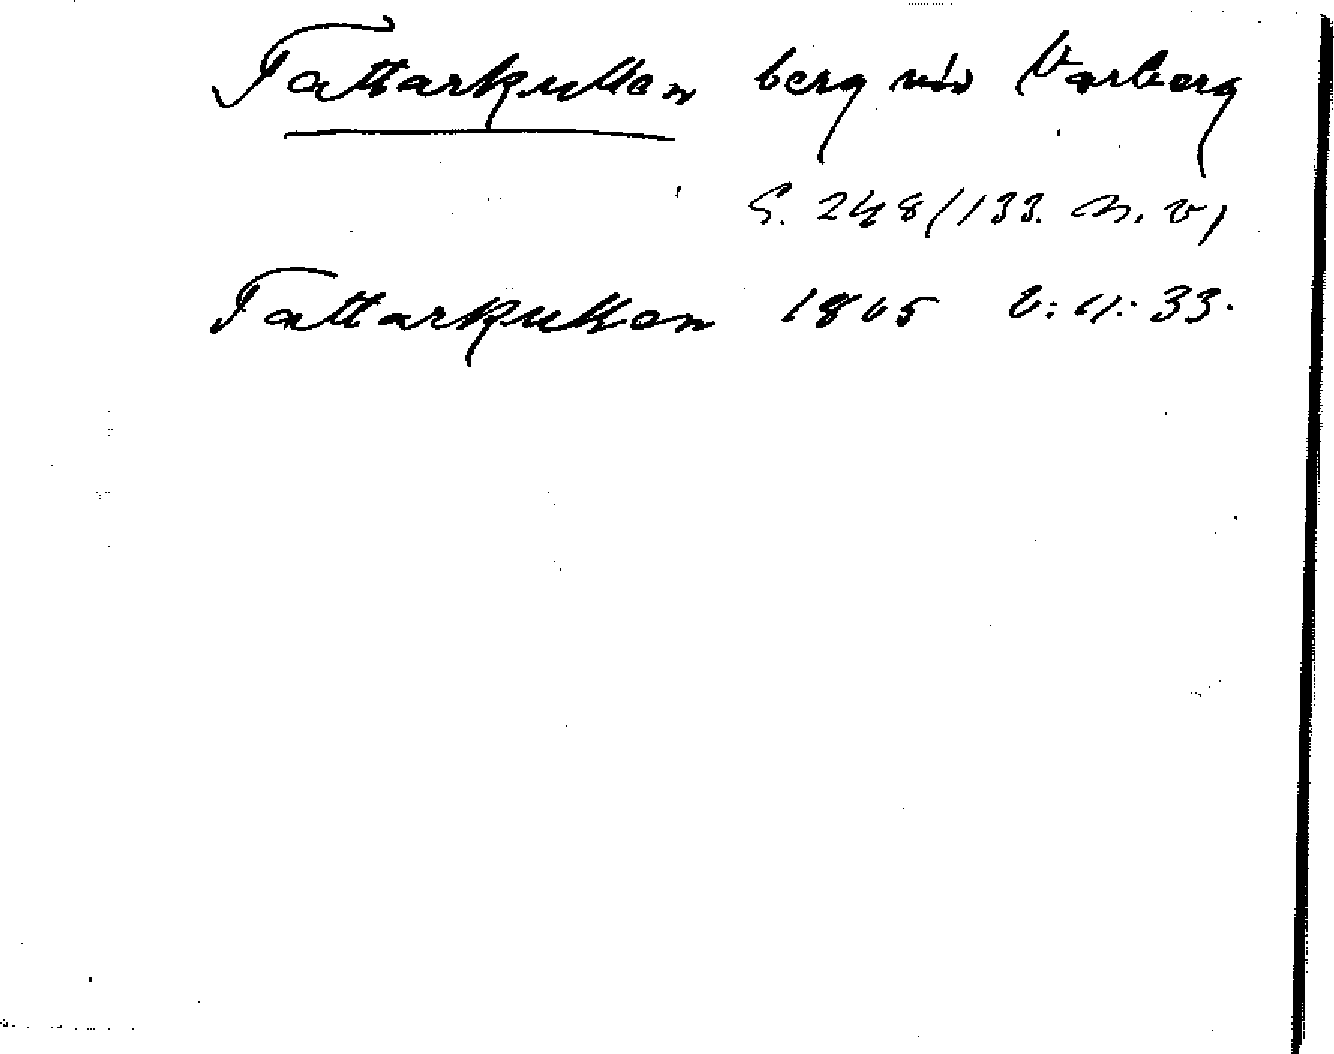 Tattarkullen berg vid Varberg
S. 248/133. n. v,
Tattarkullen 1865 v: 11: 33.